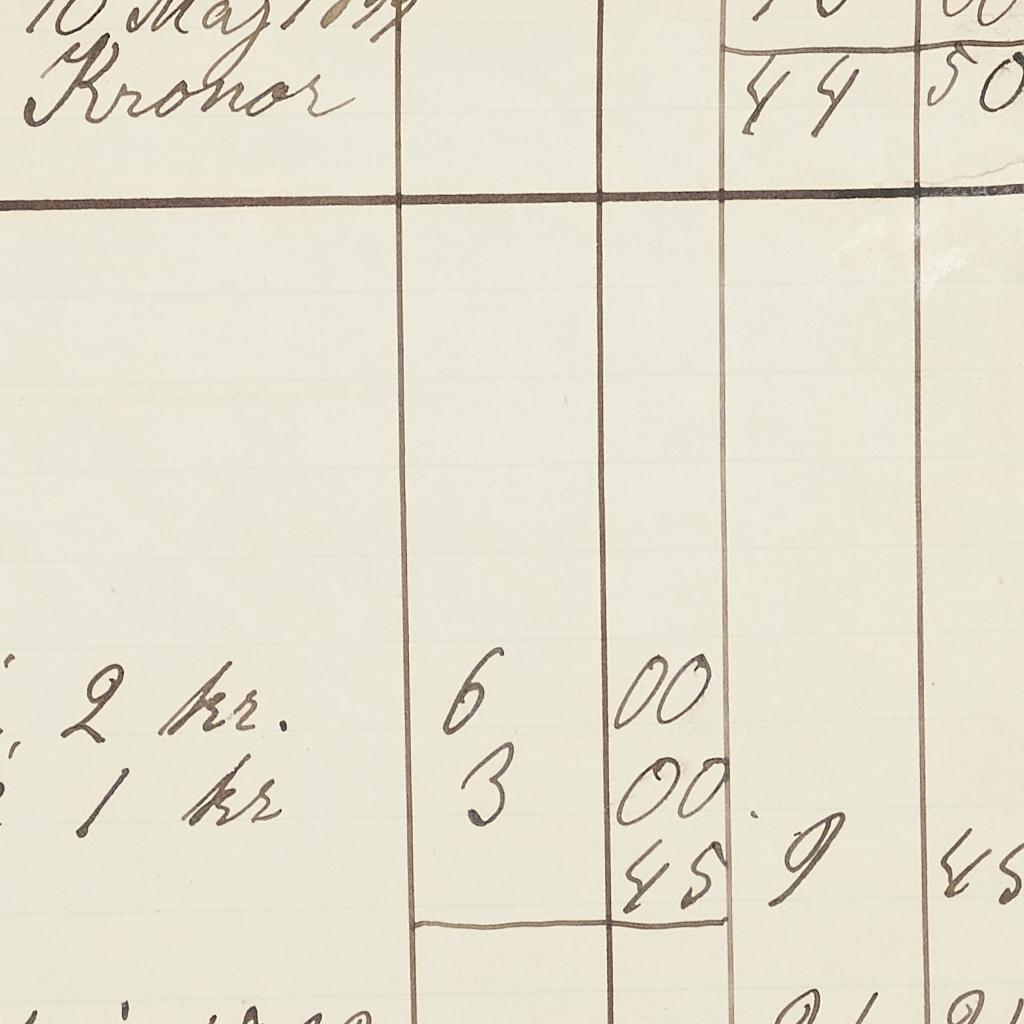 10 Maj 18
Kronor 44 50
à 2 kr. 6 00
à 1 kr 3 00
45 9 45